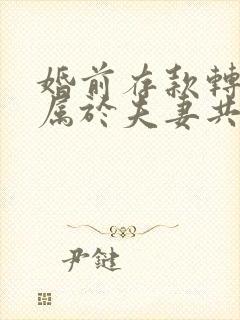 婚前存款轉
属於夫妻共
尹鍵